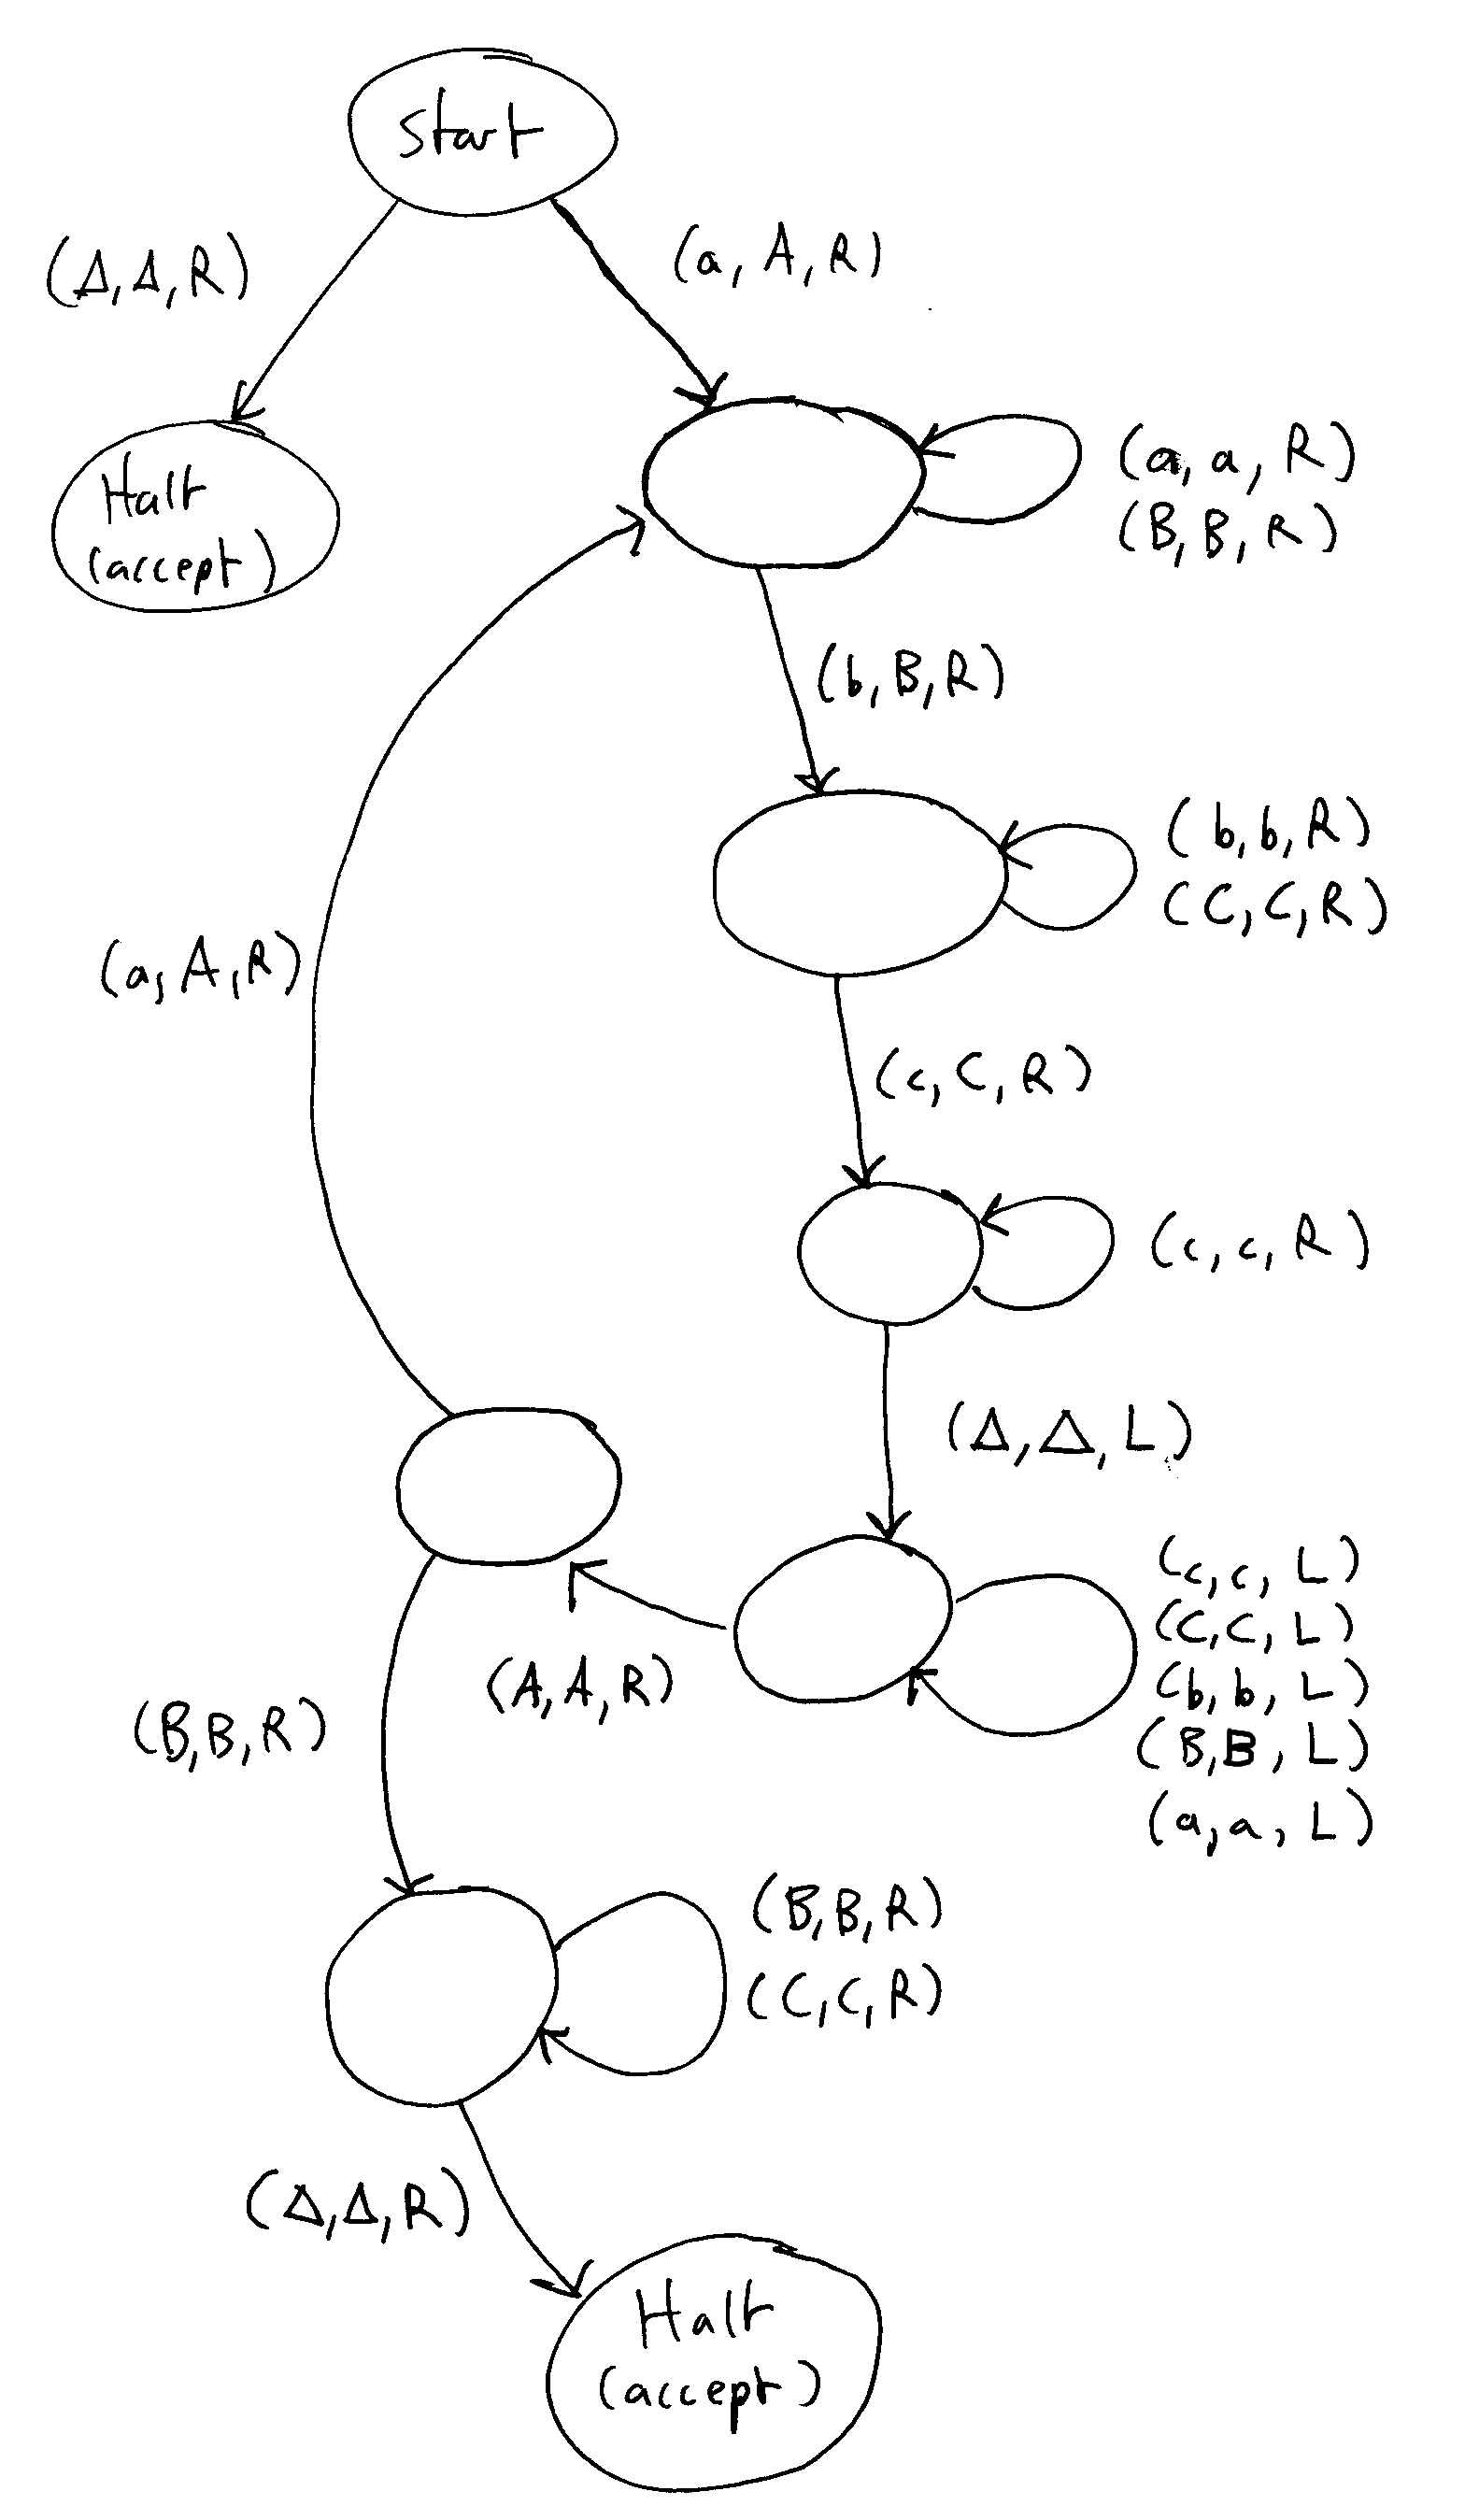 start
(Δ, Δ, R)
(a, A, R)
Halt
(accept)
(a, a, R)
(B, B, R)
(b, B, R)
(b, b, R)
(C, C, R)
(a, A, R)
(c, C, R)
(c, c, R)
(Δ, Δ, L)
(c, c, L)
(C, C, L)
(b, b, L)
(B, B, L)
(a, a, L)
(A, A, R)
(B, B, R)
(B, B, R)
(C, C, R)
(Δ, Δ, R)
Halt
(accept)